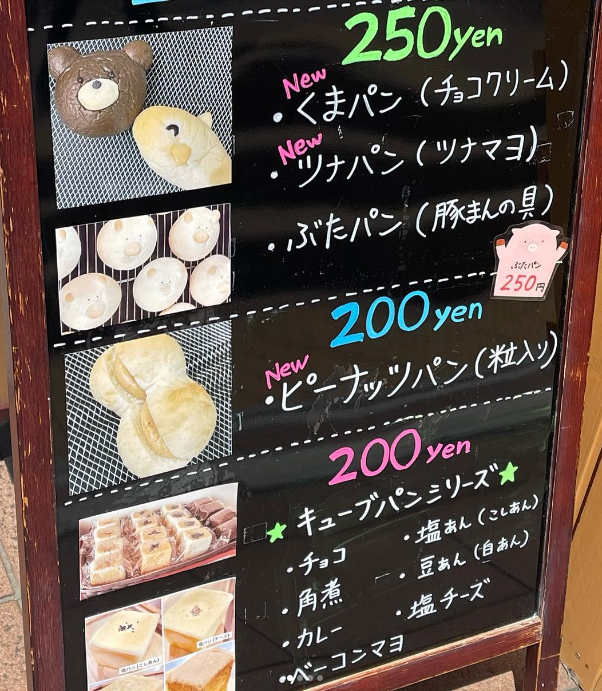 250yen
New
・くまパン (チョコクリーム)
New
・ツナパン (ツナマヨ)
・ぶたパン (豚まんの具)
ぶたパン
250円
200yen
New
・ピーナッツパン (粒入り)
200yen
★キューブパンシリーズ★
・チョコ
・角煮
・カレー
・ベーコンマヨ
・塩あん (こしあん)
・豆あん (白あん)
・塩チーズ
塩パン(こしあん)
塩パン(チーズ)